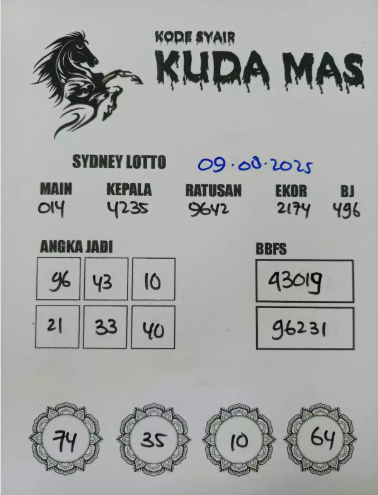 KODE SYAIR
KUDA MAS
SYDNEY LOTTO 09.08.2025
MAIN KEPALA RATUSAN EKOR BJ
014 4235 9642 2174 496
ANGKA JADI BBFS
96 43 10 43019
21 33 40 96231
74 35 10 64